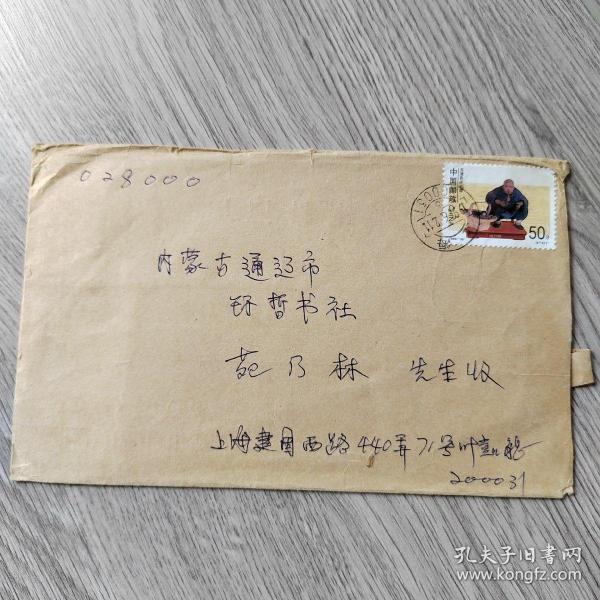 028000
中国邮政
50分
内蒙古通辽市
环哲书社
苑乃林 先生收
上海建国西路440弄71号叶
200031
孔夫子旧书网
www.kongfz.com